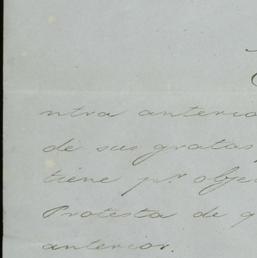 ntra anterio
de sus gratas
tiene pr. obje
Protesta de q
anterior.